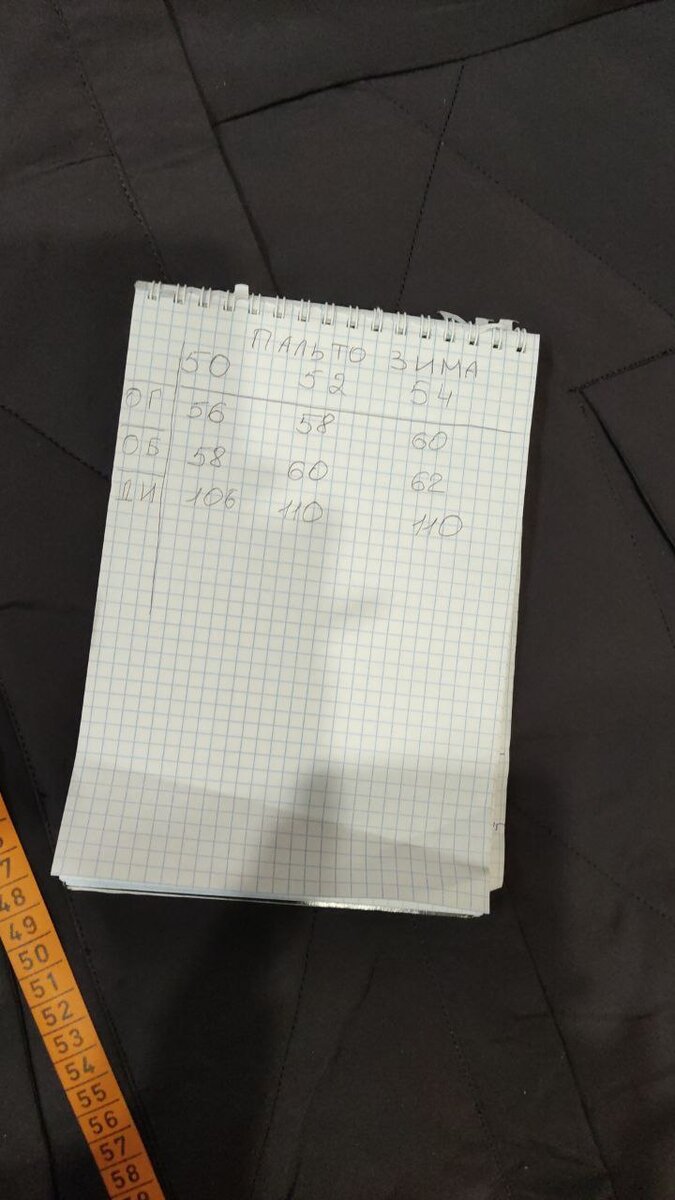 ПАЛЬТО ЗИМА
50 52 54
ОГ 56 58 60
ОБ 58 60 62
ДИ 106 110 110
7
48
49
50
51
52
53
54
55
56
57
58